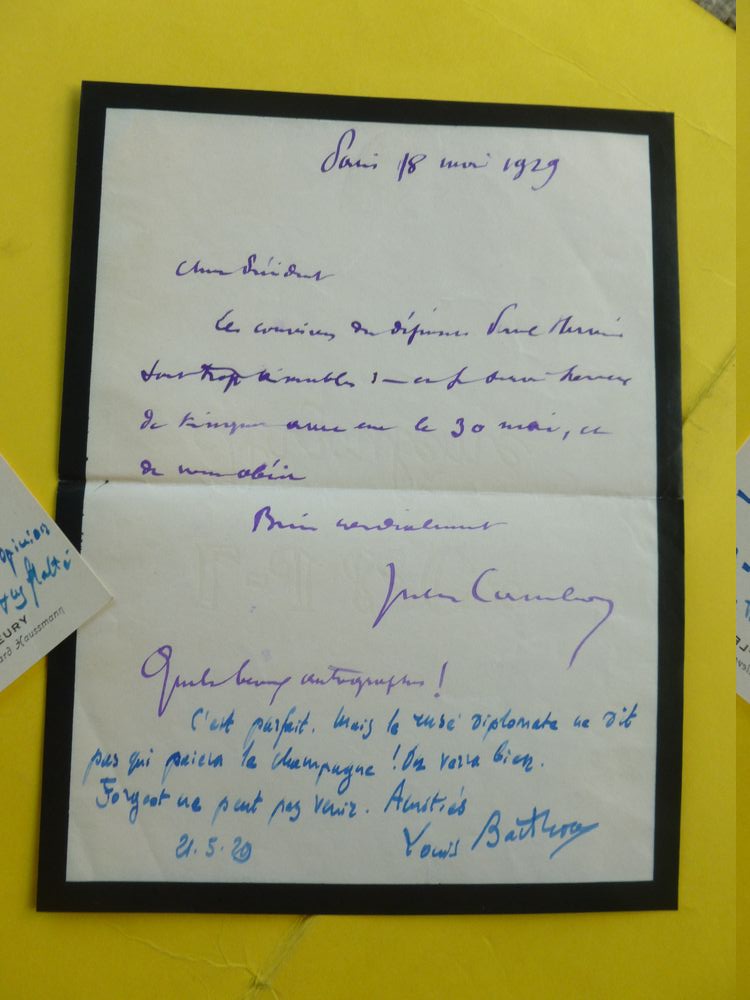 Paris 18 mai 1929
Cher Président
Les convives du déjeuner Paul
sont trop aimables : je serai heureux
de trinquer avec eux le 30 mai, et
de
Bien cordialement
Jules Cambon
Quels beaux autographes !
C'est parfait. Mais le rusé diplomate ne dit
pas qui paiera le champagne ! On verra bien.
Forgeot ne peut pas venir. Amitiés
21.5.29
Louis Barthou
opinion
EURY
ard Haussmann